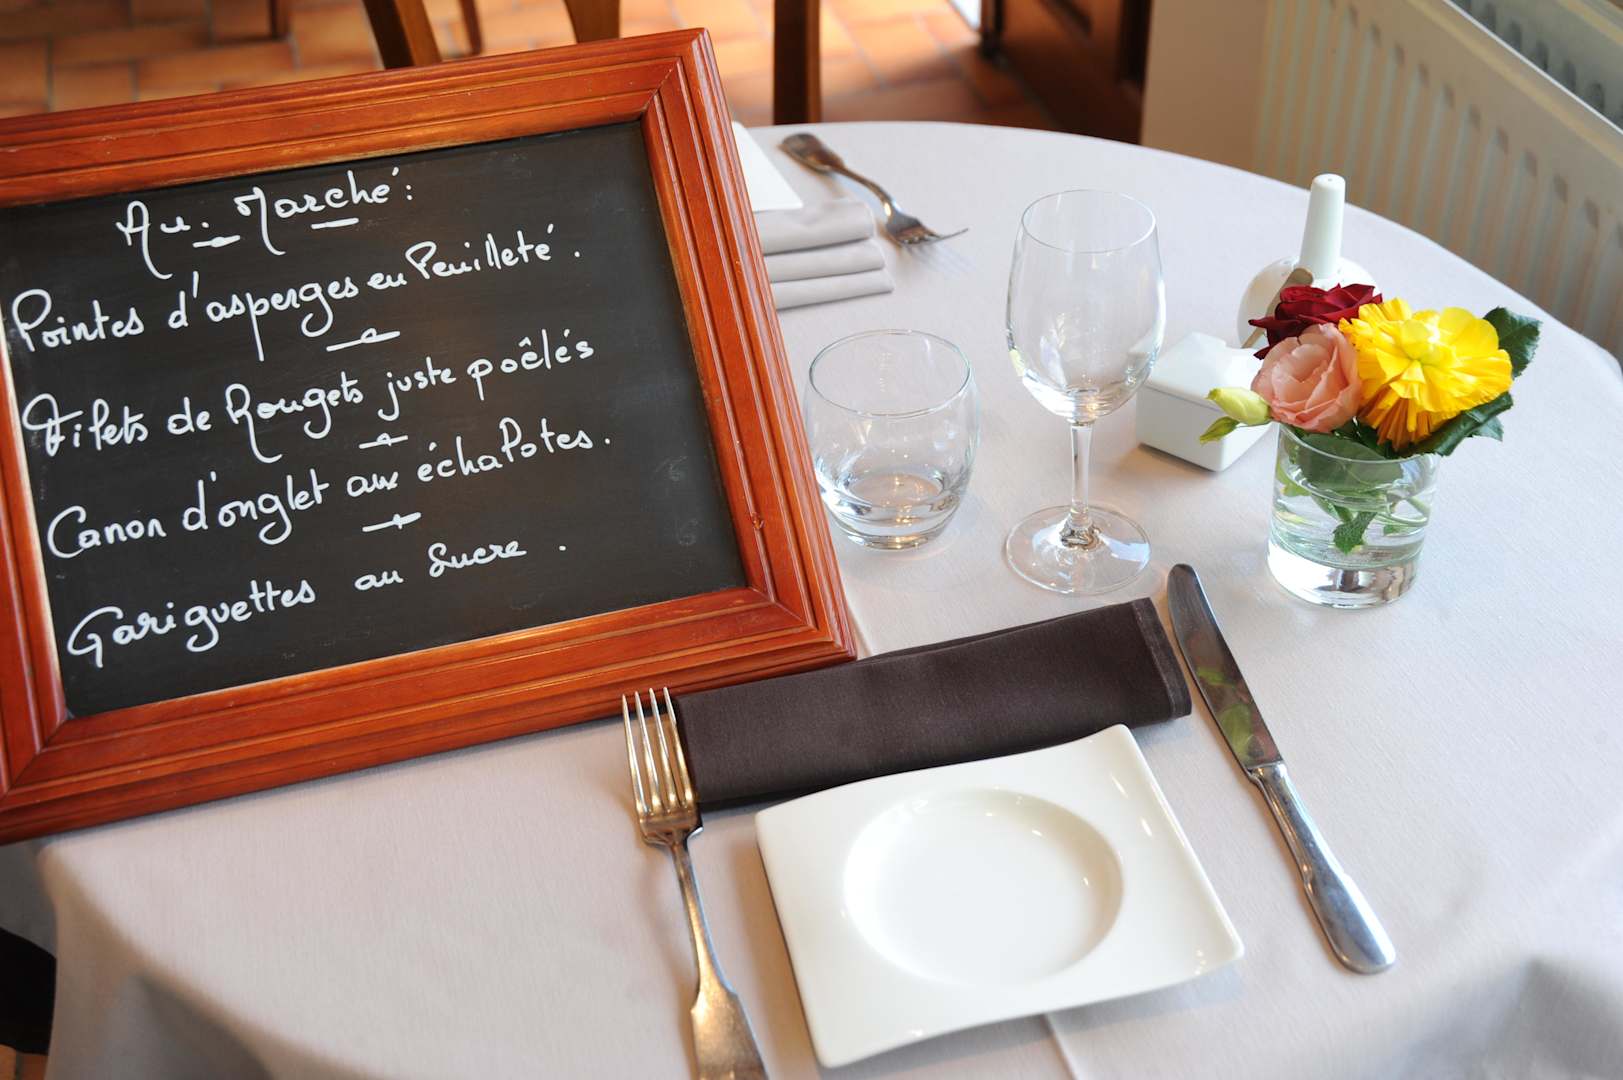 Au. Marché:
Pointes d'asperges en Feuilleté.
Filets de Rougets juste poêlés
Canon d'onglet aux échalotes.
Gariguettes au Sucre.